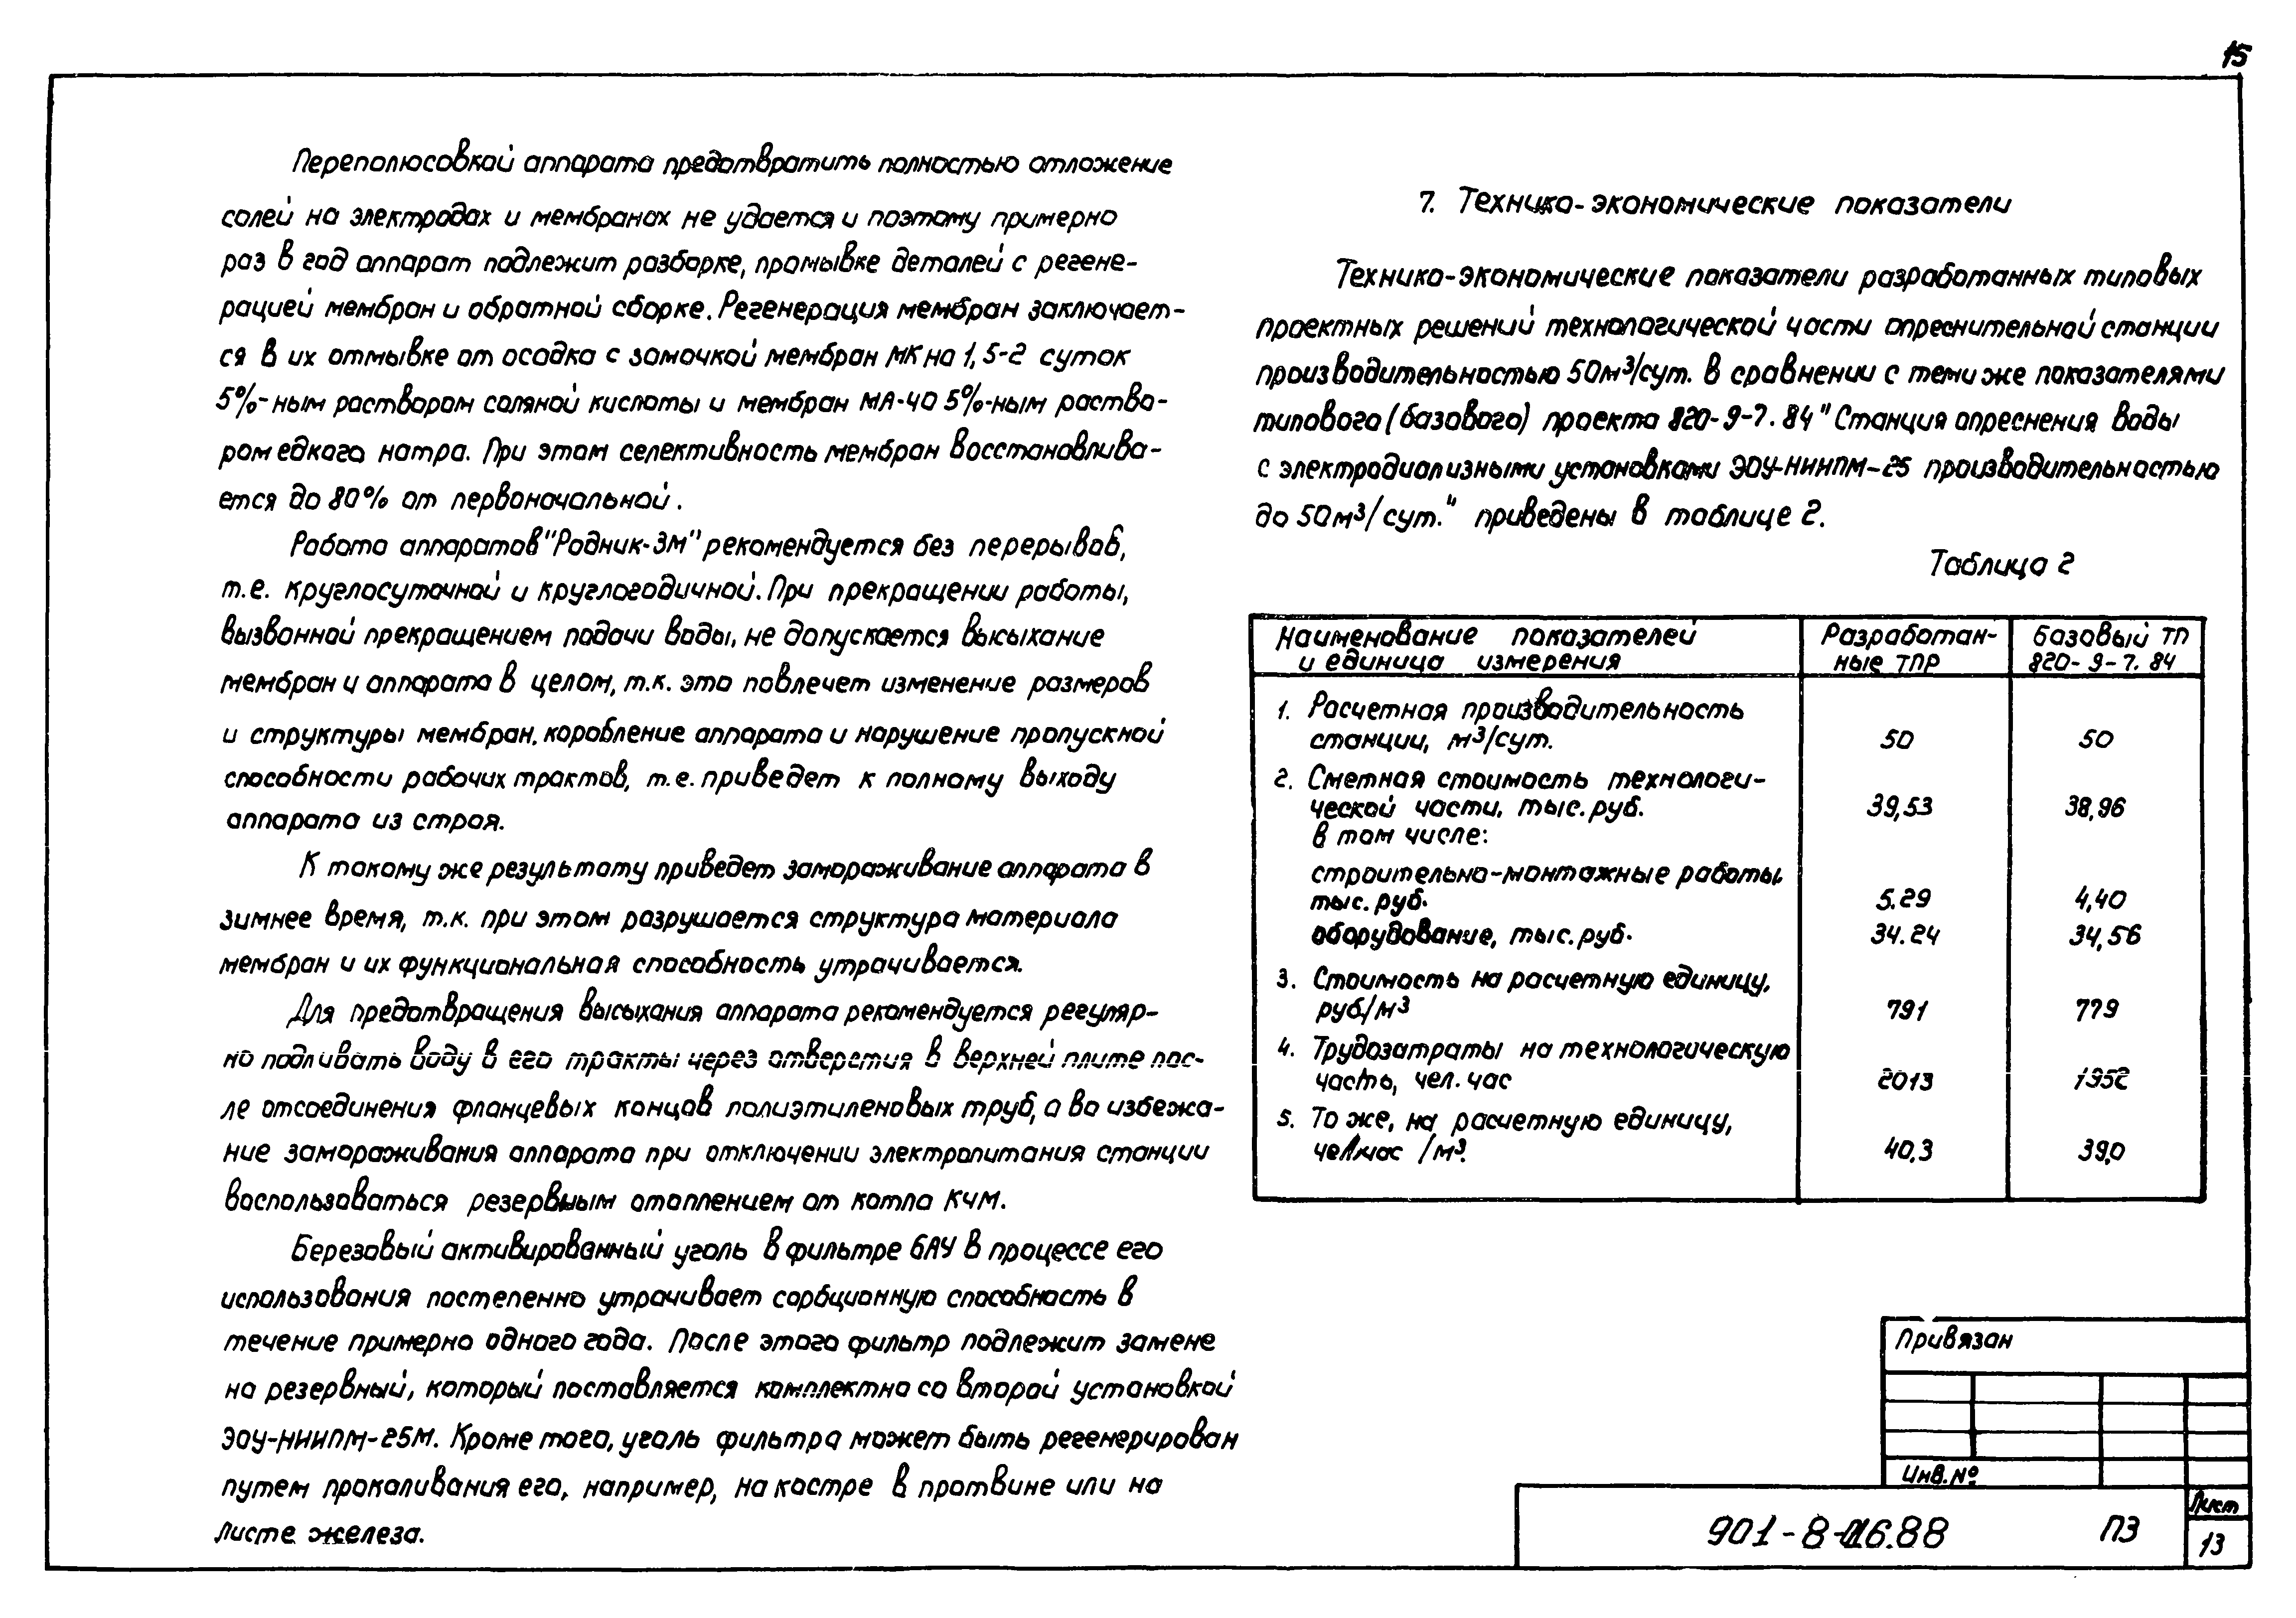 15
Переполюсовкой аппарата предотвратить полностью отложение
солей на электродах и мембранах не удается и поэтому примерно
раз в год аппарат подлежит разборке, промывке деталей с регене-
рацией мембран и обратной сборке. Регенерация мембран заключает-
ся в их отмывке от осадка с замочкой мембран МК на 1,5-2 суток
5%-ным раствором соляной кислоты и мембран МА-40 5%-ным раство-
ром едкого натра. При этом селективность мембран восстанавлива-
ется до 80% от первоначальной.
Работа аппаратов "Родник-3М" рекомендуется без перерывов,
т.е. круглосуточной и круглогодичной. При прекращении работы,
вызванной прекращением подачи воды, не допускается высыхание
мембран и аппарата в целом, т.к. это повлечет изменение размеров
и структуры мембран, коробление аппарата и нарушение пропускной
способности рабочих трактов, т.е. приведет к полному выходу
аппарата из строя.
К такому же результату приведет замораживание аппарата в
зимнее время, т.к. при этом разрушается структура материала
мембран и их функциональная способность утрачивается.
Для предотвращения высыхания аппарата рекомендуется регуляр-
но подливать воду в его тракты через отверстия в верхней плите пос-
ле отсоединения фланцевых концов полиэтиленовых труб, а во избежа-
ние замораживания аппарата при отключении электропитания станции
воспользоваться резервным отоплением от котла КЧМ.
Березовый активированный уголь в фильтре БАУ в процессе его
использования постепенно утрачивает сорбционную способность в
течение примерно одного года. После этого фильтр подлежит замене
на резервный, который поставляется комплектно со второй установкой
ЭОУ-НИИПМ-25М. Кроме того, уголь фильтра может быть регенерирован
путем прокаливания его, например, на костре в противне или на
листе железа.
7. Технико-экономические показатели
Технико-экономические показатели разработанных типовых
проектных решений технологической части опреснительной станции
производительностью 50м³/сут. в сравнении с теми же показателями
типового (базового) проекта 820-9-7.84 "Станция опреснения воды
с электродиализными установками ЭОУ-НИИПМ-25 производительностью
до 50м³/сут." приведены в таблице 2.
Таблица 2
Наименование показателей Разработан- Базовый ТП
и единица измерения ные ТПР 820-9-7.84
1. Расчетная производительность
станции, м³/сут. 50 50
2. Сметная стоимость технологи-
ческой части, тыс.руб. 39,53 38,96
в том числе:
строительно-монтажные работы,
тыс.руб. 5.29 4,40
оборудование, тыс.руб. 34.24 34,56
3. Стоимость на расчетную единицу,
руб/м³ 791 779
4. Трудозатраты на технологическую
часть, чел.час 2013 1952
5. То же, на расчетную единицу,
чел.час /м³. 40,3 39,0
Привязан
Инв.№
901-8- ПЗ
Лист
13